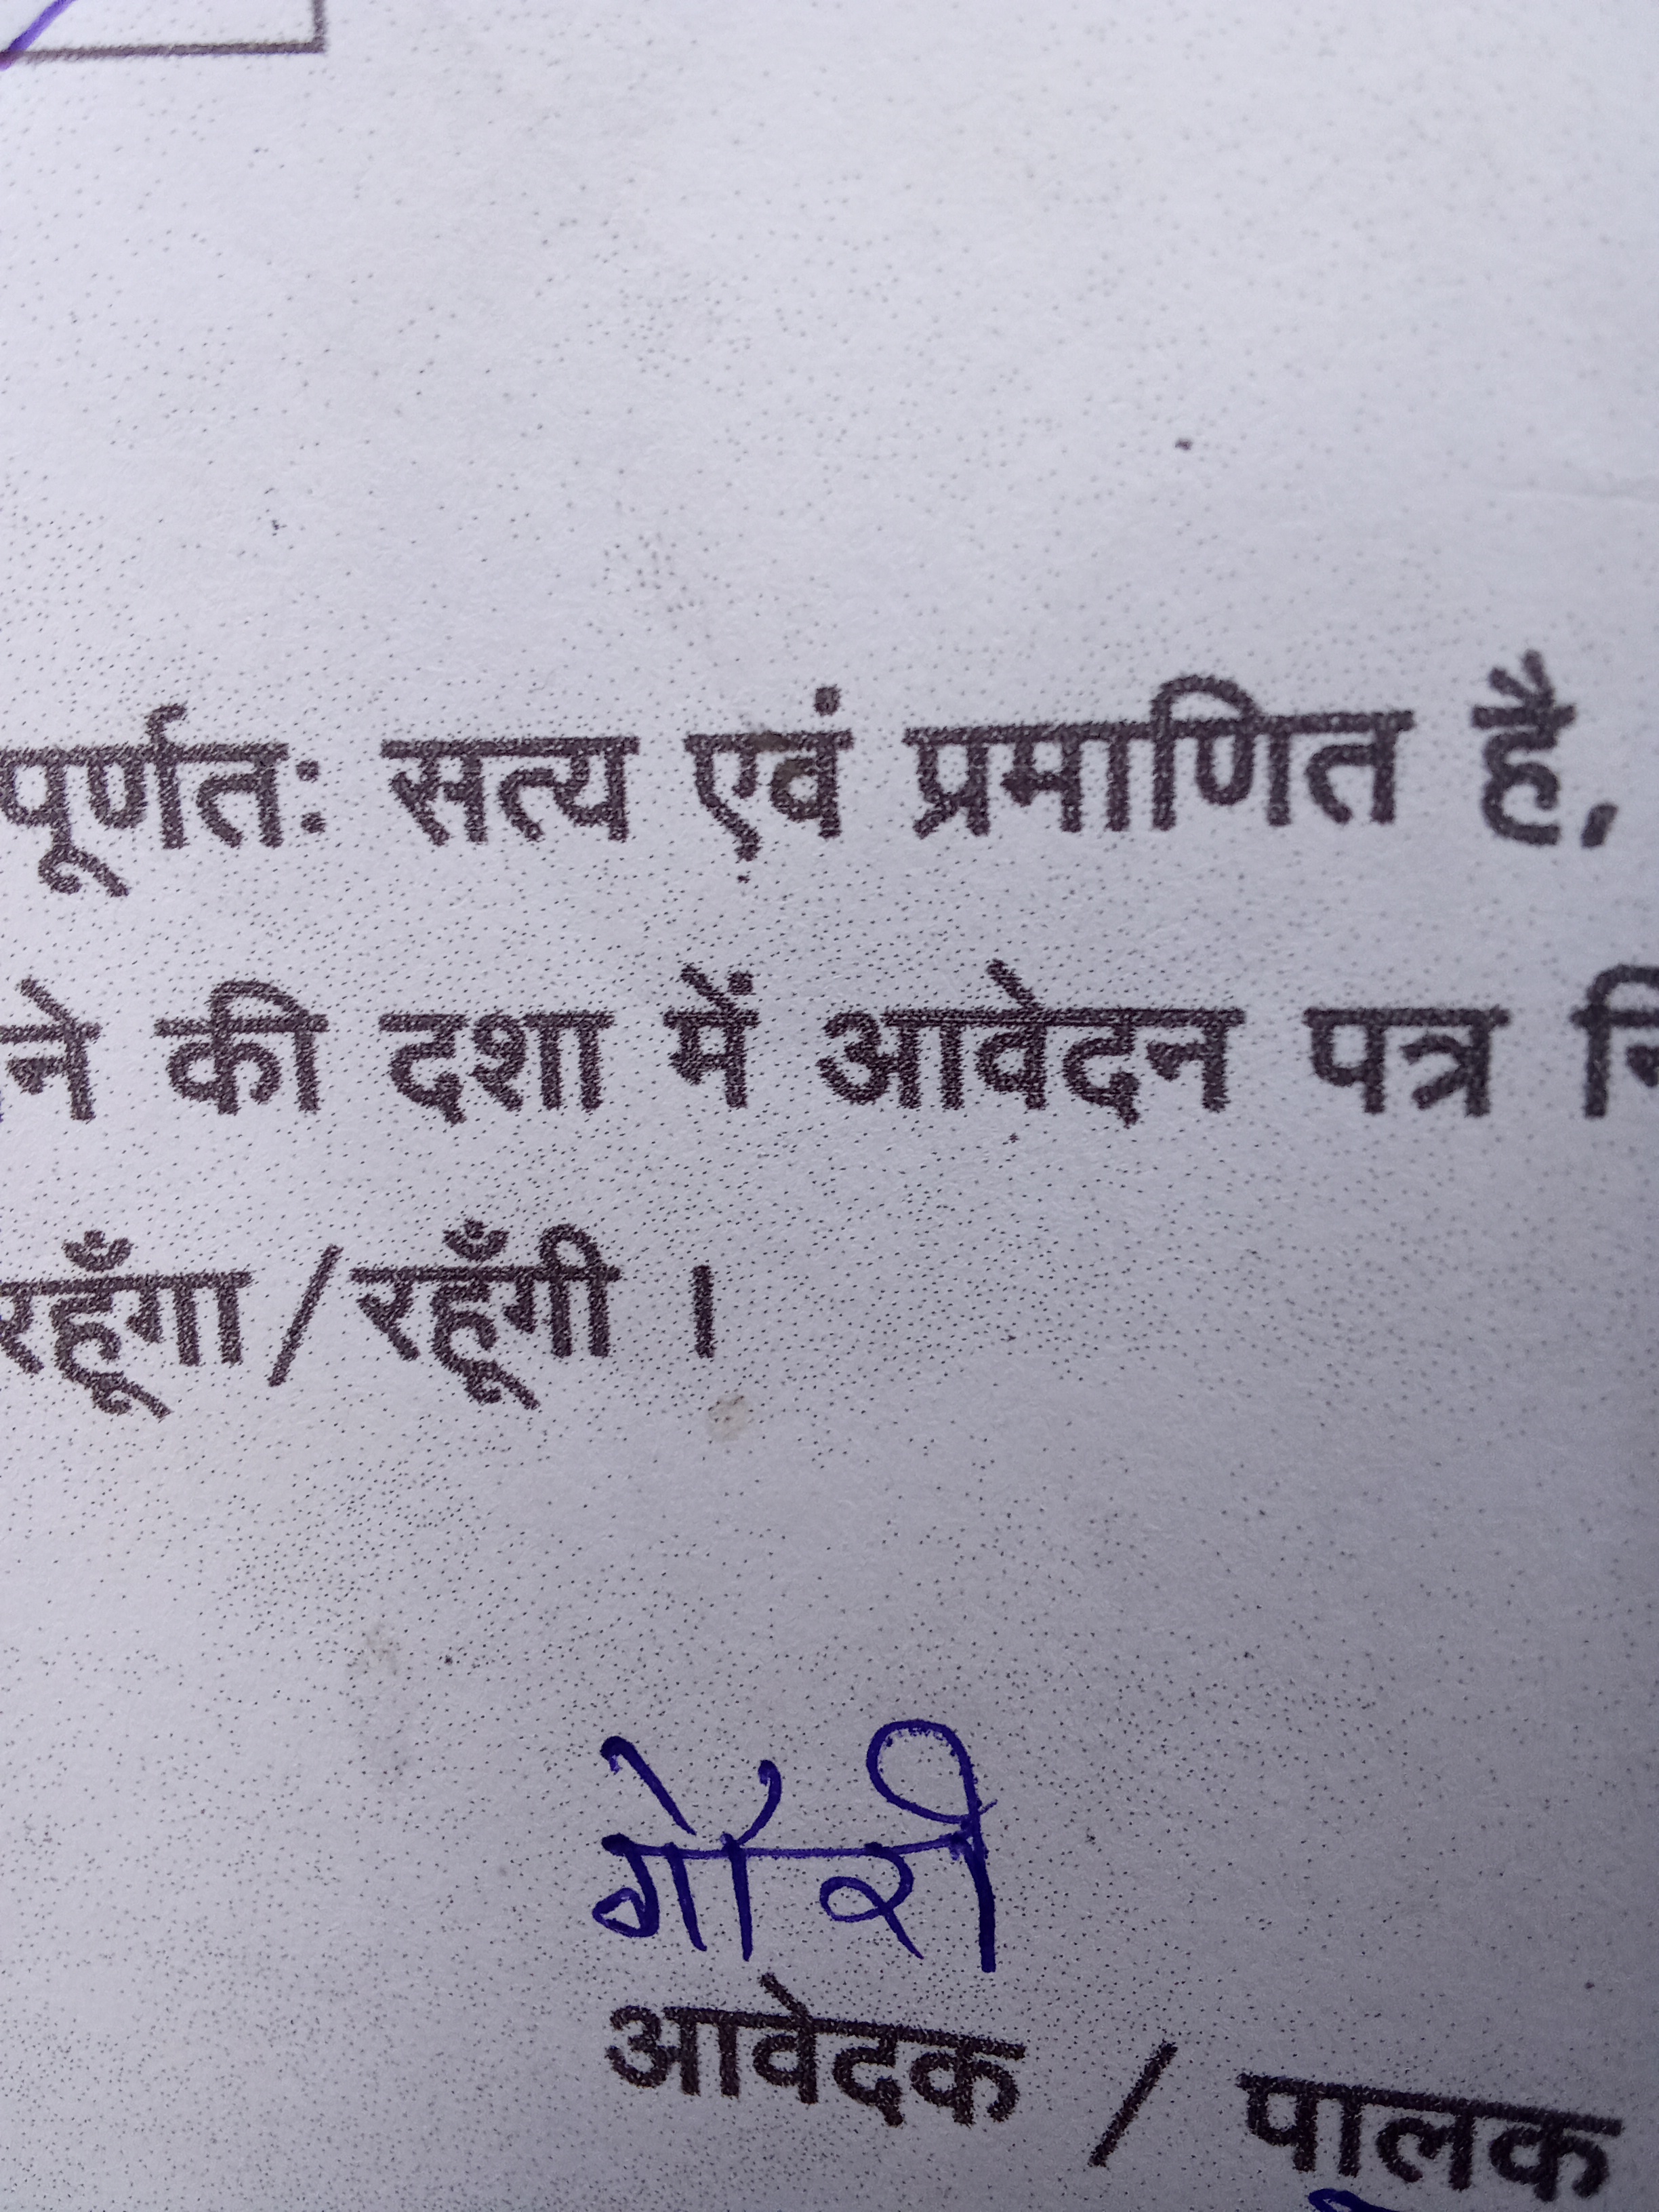 पूर्णतः सत्य एवं प्रमाणित है,
ने की दशा में आवेदन पत्र
रहूँगा/रहूँगी ।
गौरी
आवेदक / पालक